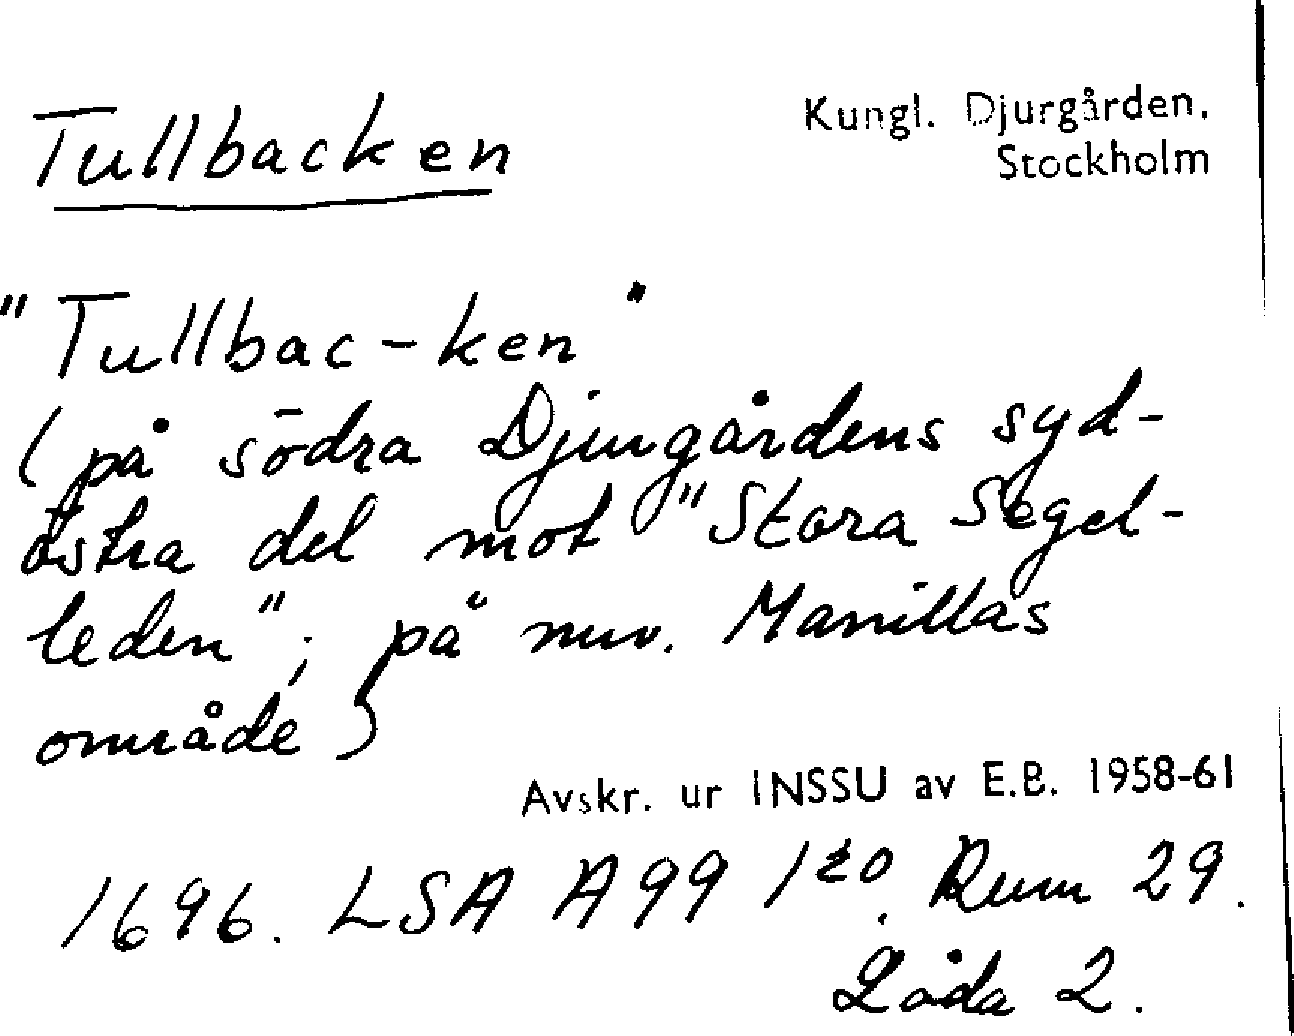 Tullbacken
Kungl. Djurgården,
Stockholm
"Tullbac-ken"
(på södra Djurgårdens syd-
östra del mot "Stora Segel-
leden"; på nuv. Manillas
område)
Avskr. ur INSSU av E.B. 1958-61
1696. LSA A99 1:20. Rum 29.
Låda 2.